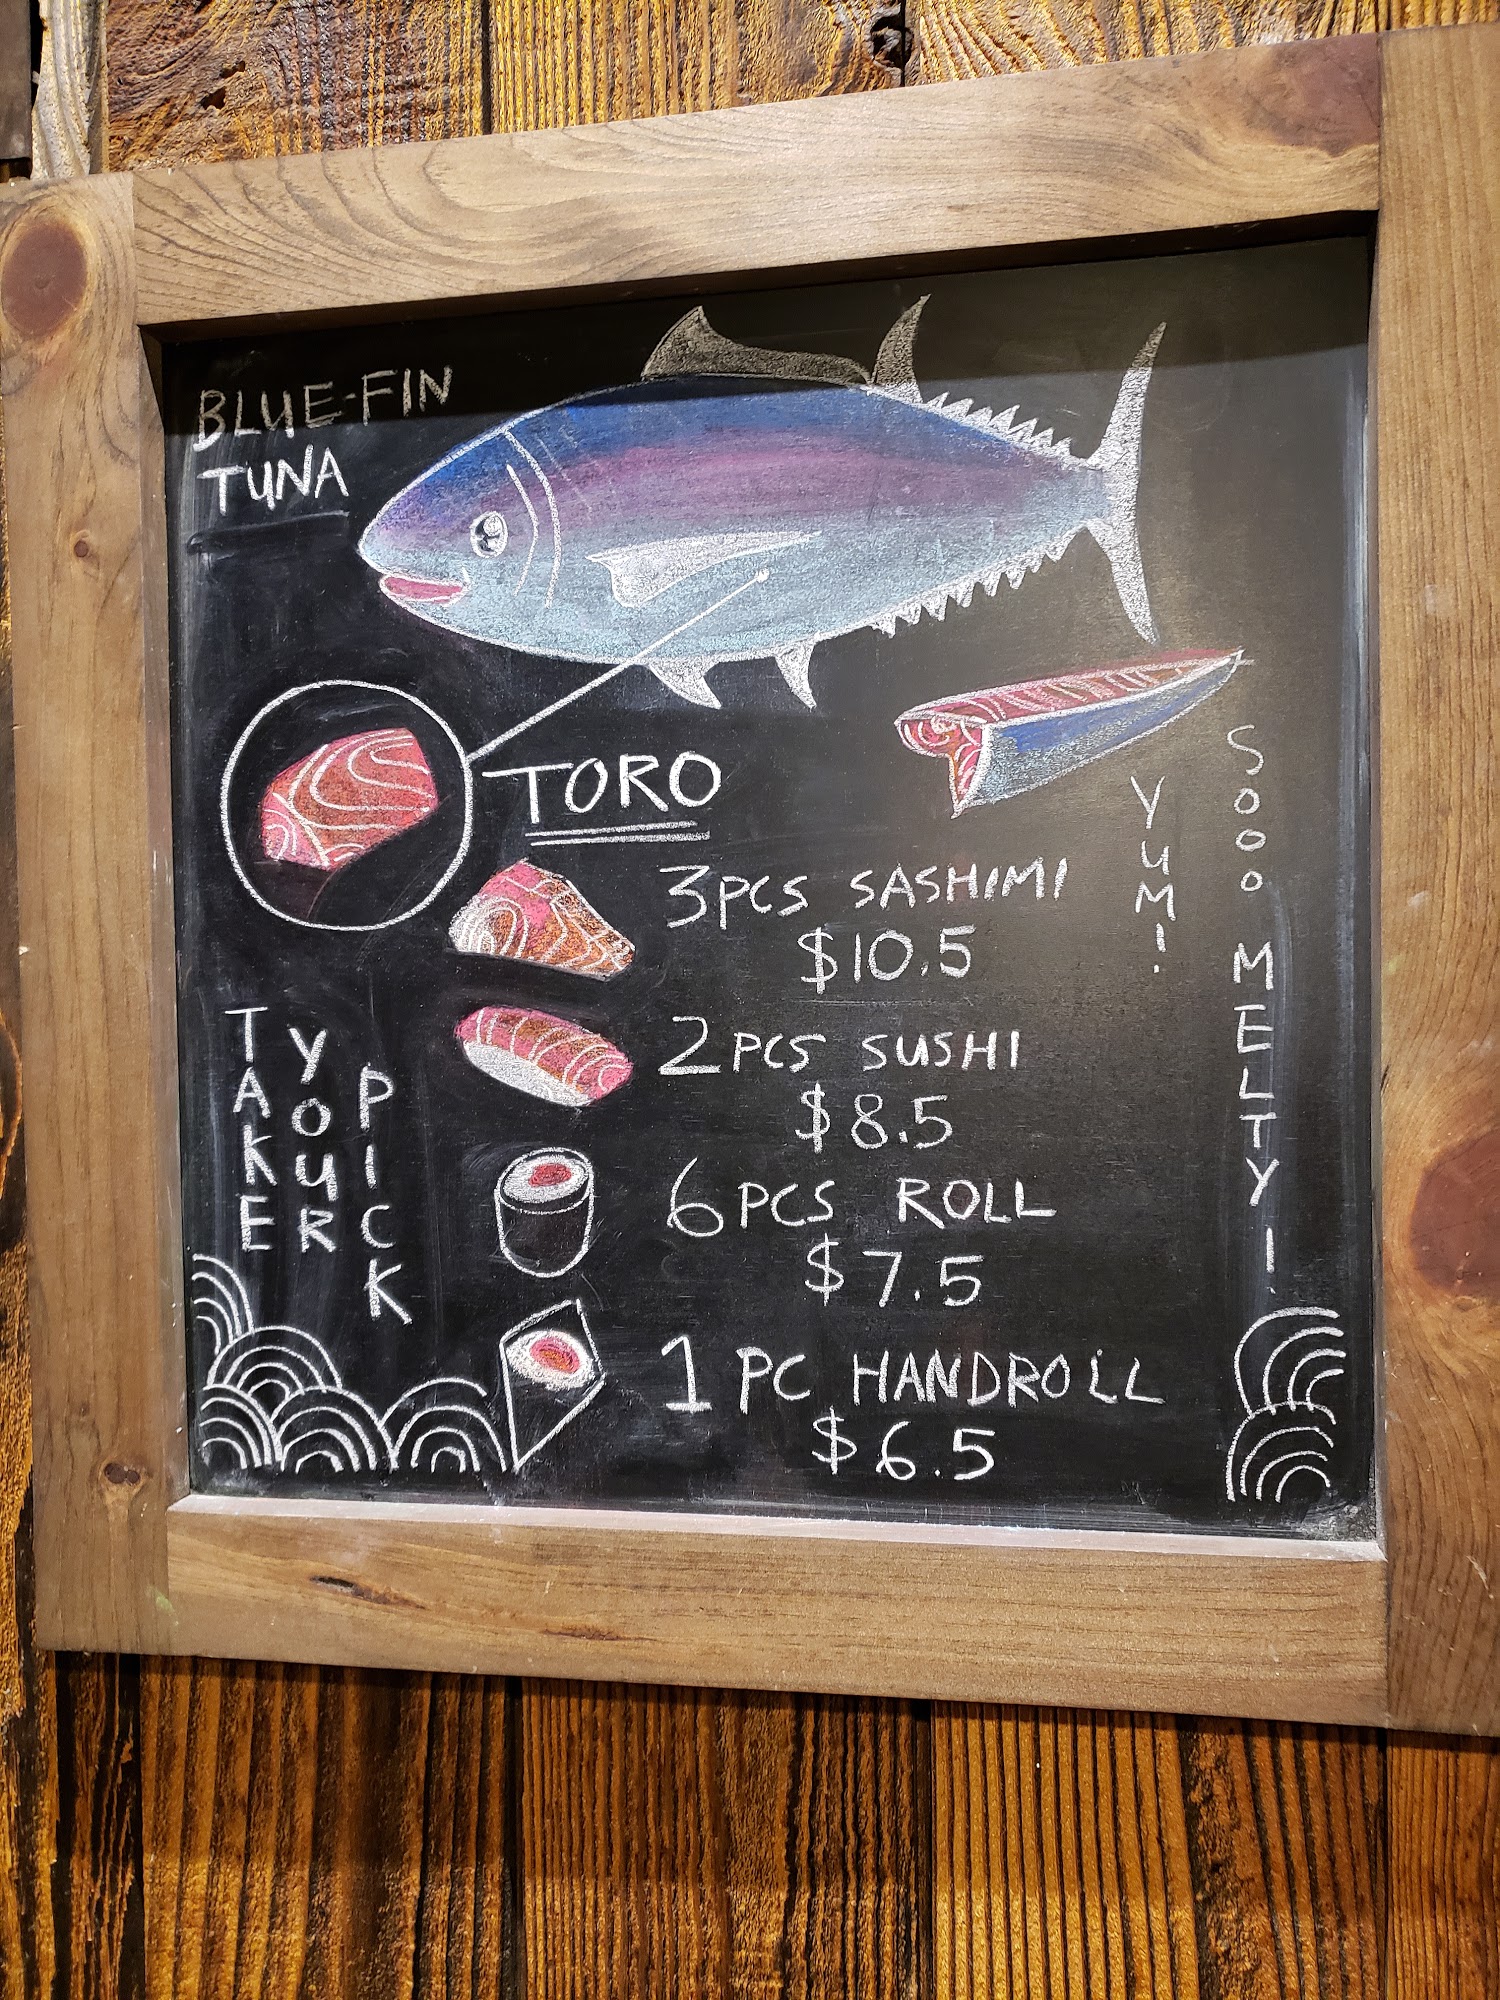 BLUE-FIN
TUNA
TORO
3PCS SASHIMI
$10.5
2PCS SUSHI
$8.5
6PCS ROLL
$7.5
1PC HANDROLL
$6.5
TAKE
YOUR
PICK
YUM!
SOOO MELTY!